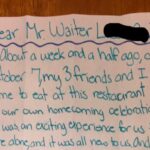 ear Mr. Waiter L
about a week and a half ago, o
tober 7 my 3 friends and I
me to eat at this restaurant
our own homecoming celebratio
was an exciting experience for us
re alone, and it was all new to us. And